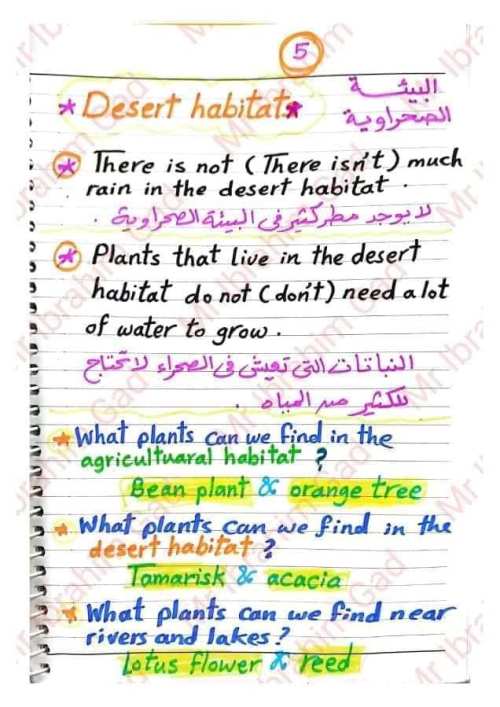 5
* Desert habitat *
البيئـــة
الصحراوية
* There is not (There isn't) much
rain in the desert habitat.
لا يوجد مطر كثير فى البيئة الصحراوية .
* Plants that live in the desert
habitat do not (don't) need a lot
of water to grow.
النباتات التى تعيش فى الصحراء لا تحتاج
للكثير من المياه .
* What plants can we find in the
agricultuaral habitat ?
Bean plant & orange tree
* What plants can we find in the
desert habitat ?
Tamarisk & acacia
* What plants can we find near
rivers and lakes ?
Lotus flower & reed
Mr Ibrahim Gad